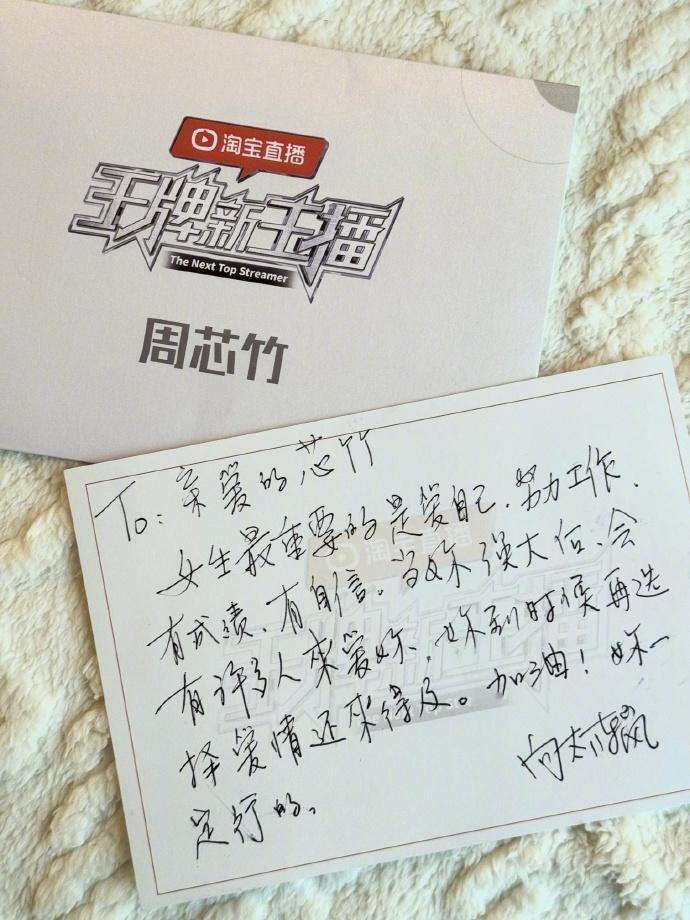 淘宝直播
王牌新主播
The Next Top Streamer
周芯竹
To: 亲爱的芯竹
女生最重要的是爱自己、努力工作、
有成绩、有自信。当妳强大后、会
有许多人来爱妳，妳到时候再选
择爱情还来得及。加油！妳一
定行的。
向太
淘宝直播
王牌新主播